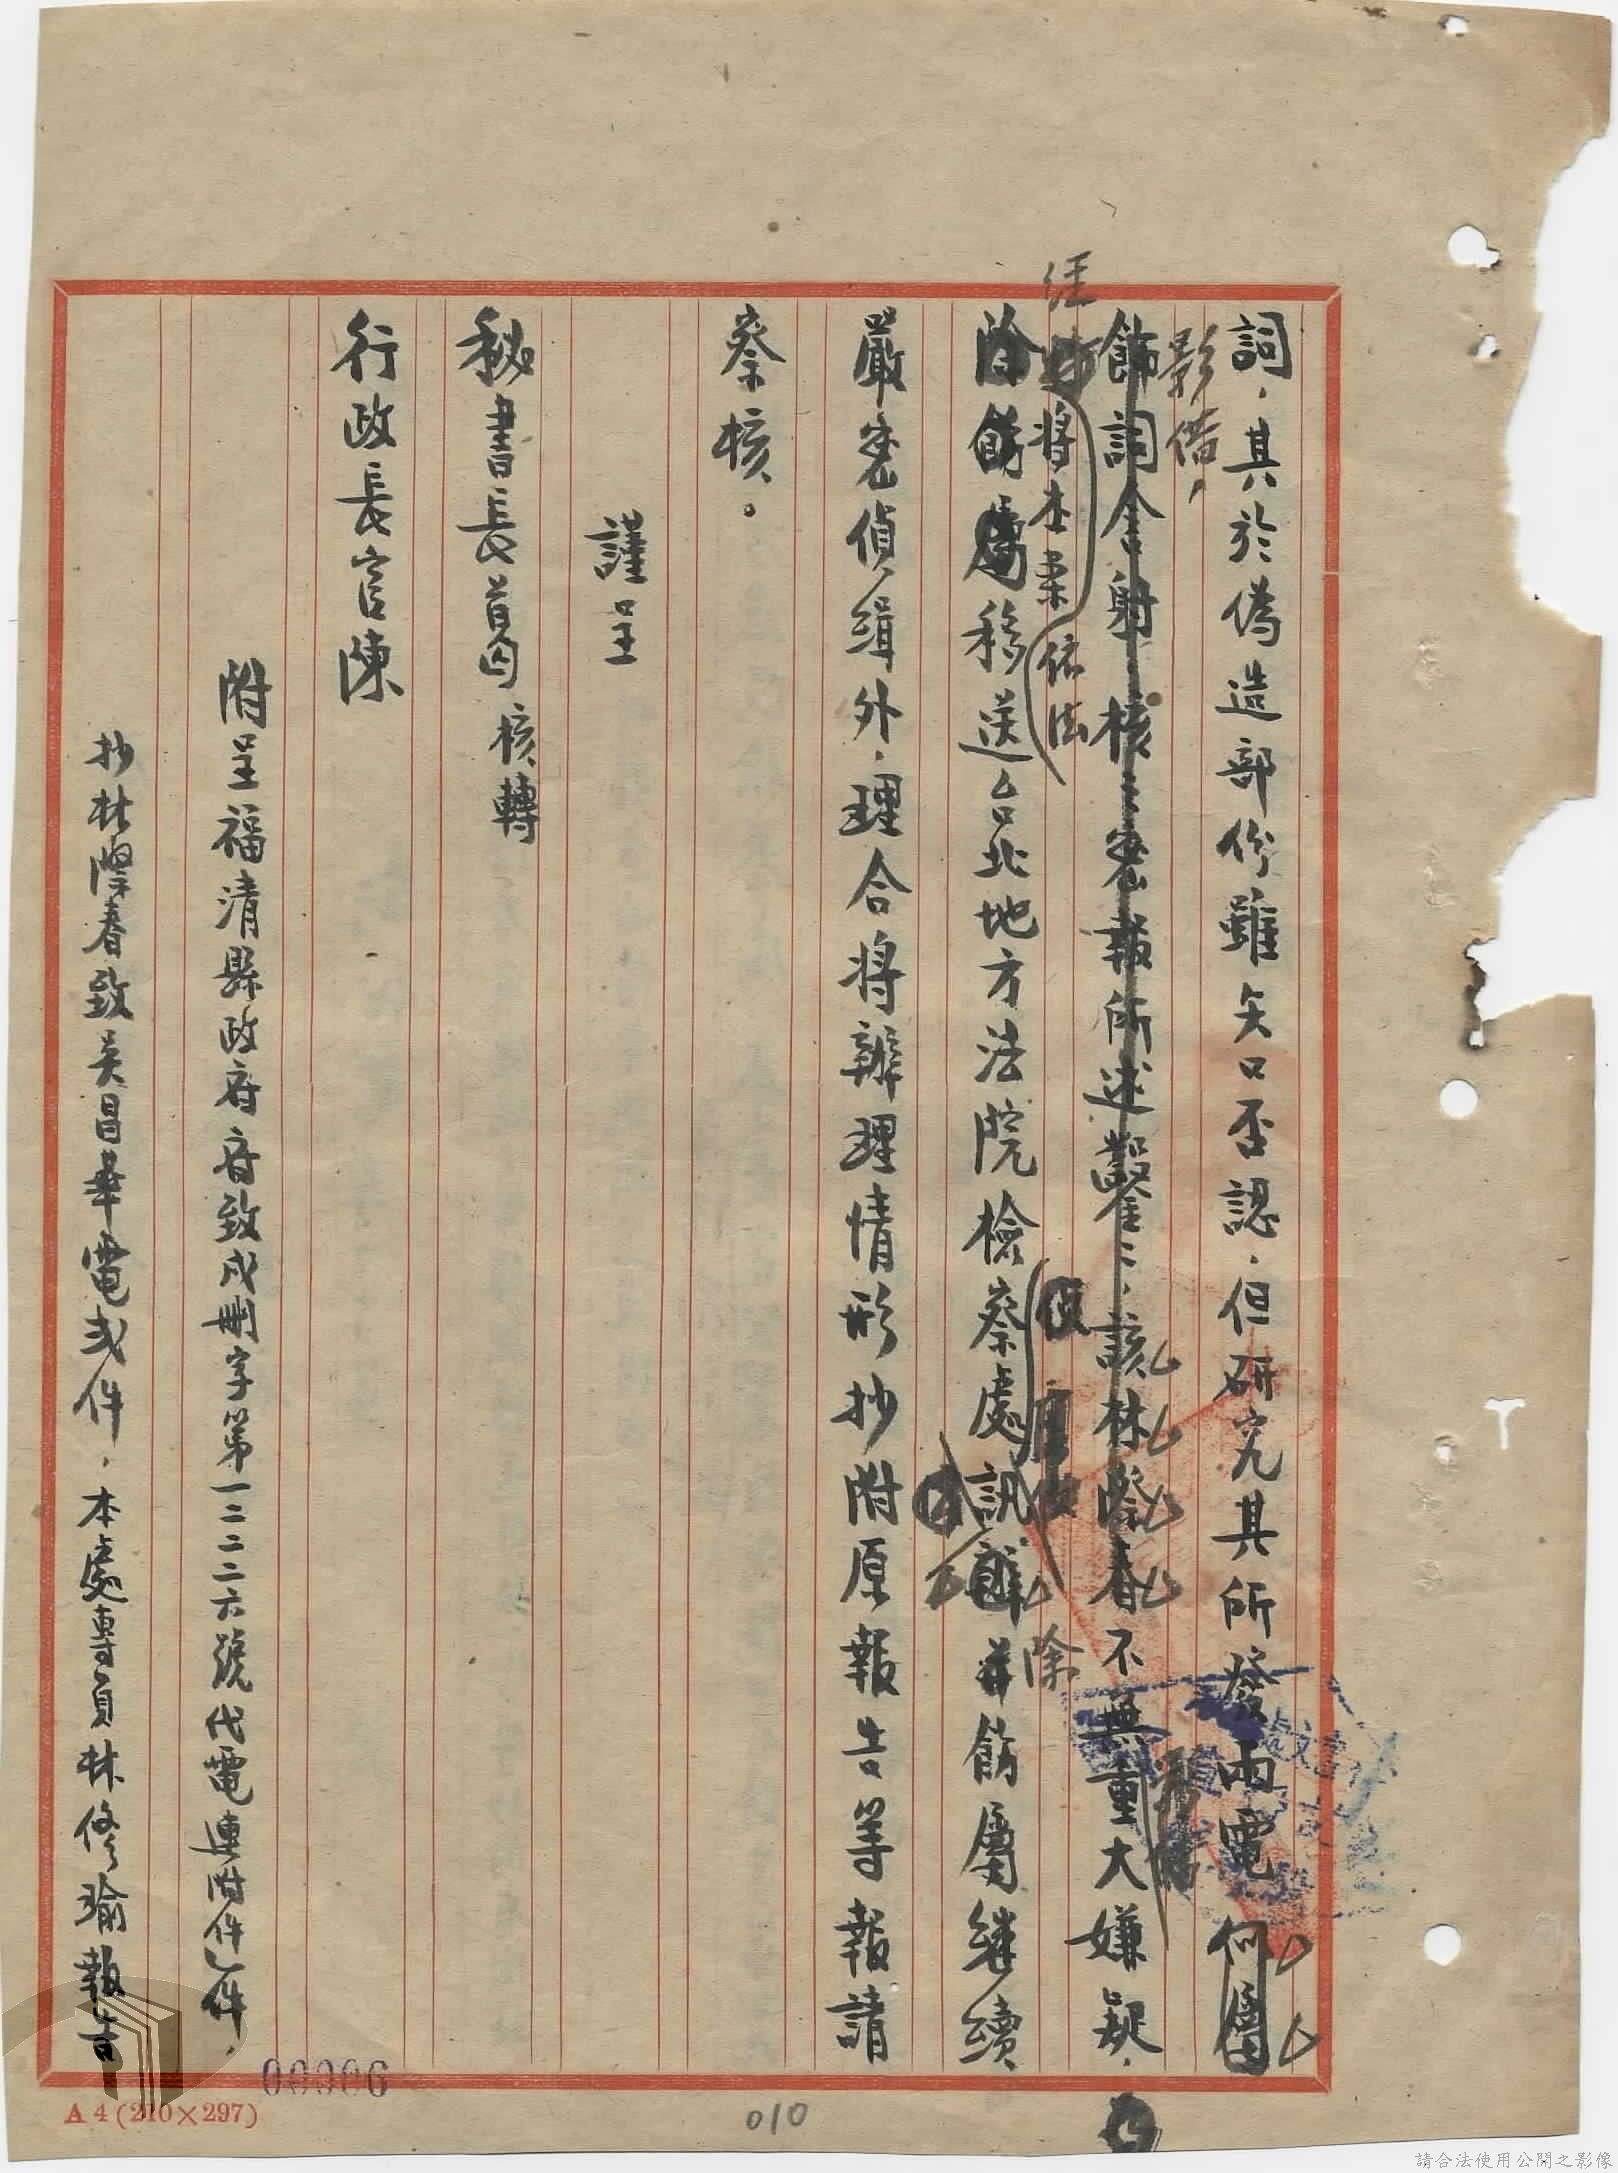 詞，其於偽造部份雖矢口否認，但研究其所發兩電
影借，
飾詞含射，核之密報所述鑿鑿，該林際春不無重大嫌疑，
經
將本案依法
除
除飭屬移送台北地方法院檢察處訊辦并飭屬継續
嚴密偵緝外，理合將辦理情形抄附原報告等報請
察核。
謹呈
秘書長葛 核轉
行政長官陳
附呈福清縣政府府致戌刪字第一二二二六號代電連附件乙件，
抄林際春致吳昌華電弍件，本處專員林修瑜報告
00006
A4(210×297)
010
請合法使用公開之影像